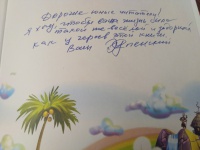 Дорогие юные читатели!
Я хочу, чтобы ваша жизнь была
такой же весёлой и задорной
как у героев этой книги.
Ваш Успенский